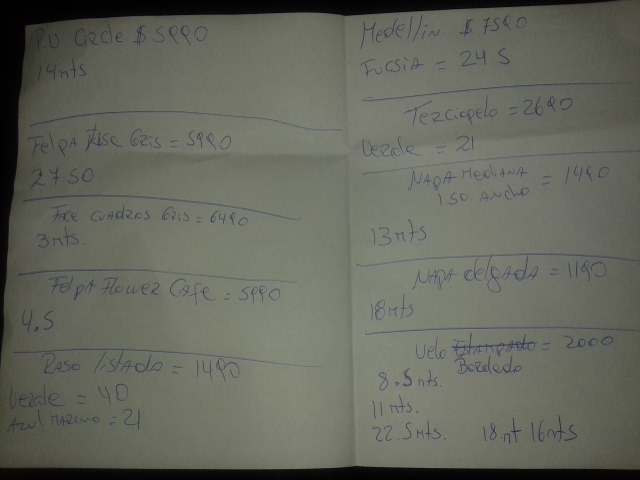 PU Circle $ 5990
14mts
Felpa Fase Gris = 5990
27 50
Face cuadros Gris = 6490
3mts.
Felpa Flower Cafe = 5990
4,5
Raso listado = 1490
Verde = 40
Azul Marino = 21
Medellin $ 7590
Fucsia = 24 5
Terciopelo = 2690
Verde = 21
Napa Mediana = 1490
1.50 Ancho
13mts
Napa delgada = 1190
18mts
Velo Estampado = 2000
Bordado
8.5mts.
11mts.
22.5mts. 18.mt 16mts